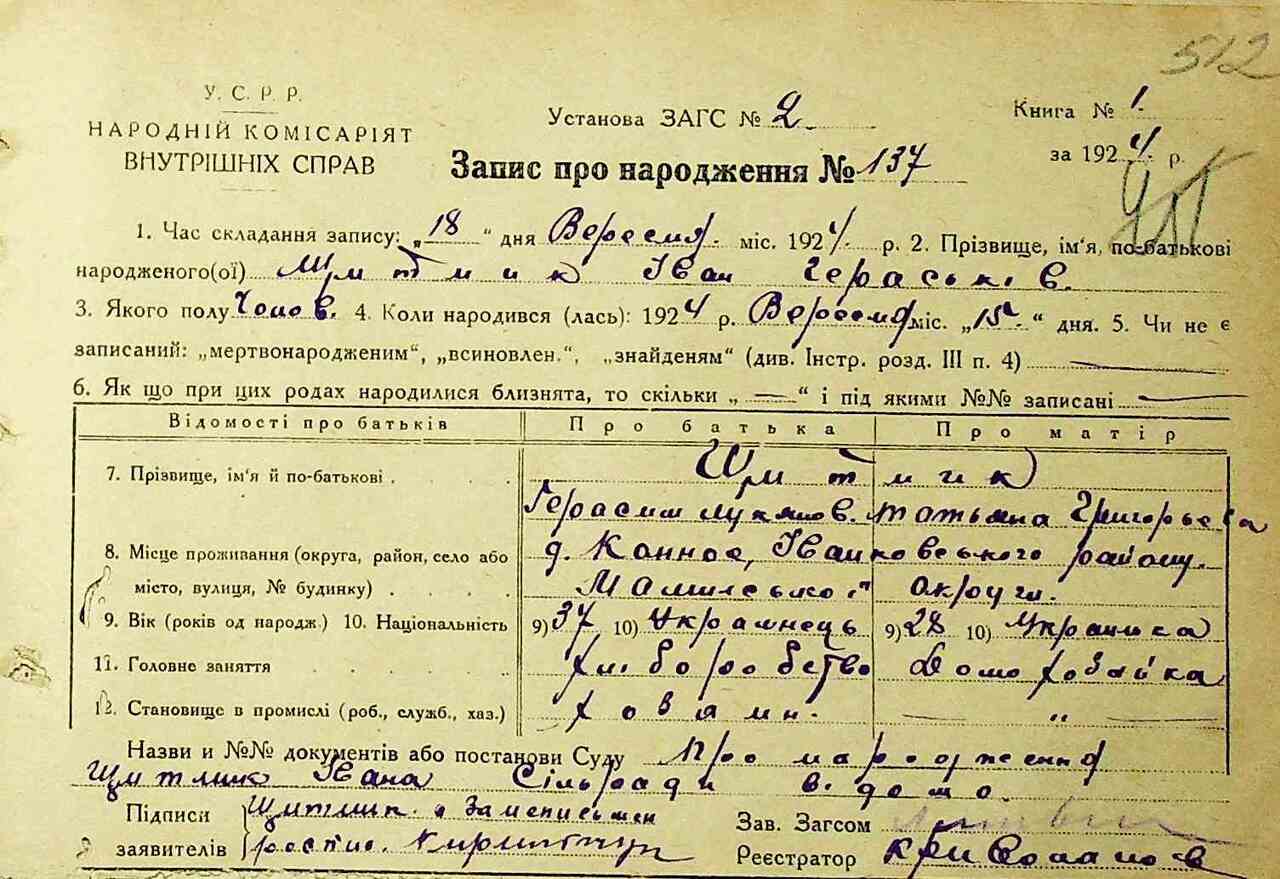 512
У. С. Р. Р.
НАРОДНІЙ КОМІСАРІЯТ
ВНУТРІШНІХ СПРАВ
Установа ЗАГС № 2.
Книга № 1.
за 1924 р.
Запис про народження № 137
1. Час складання запису: „18“ дня Вересня міс. 1924 р. 2. Прізвище, ім'я, по-батькові
народженого(ої) Іван Гераськів.
3. Якого полу Чолов. 4. Коли народився (лась): 1924 р. Вересня міс. „15“ дня. 5. Чи не є
записаний: „мертвонародженим“, „всиновлен.“, „знайденям“ (див. Інстр. розд. III п. 4)
6. Як що при цих родах народилися близнята, то скільки „ — “ і під якими №№ записані —
Відомості про батьків Про батька Про матір
7. Прізвище, ім'я й по-батькові
Герасим Лукянов. Татьяна Григорьева
8. Місце проживання (округа, район, село або д. Іванковського району.
місто, вулиця, № будинку) округи.
9. Вік (років од народж.) 10. Національність 9) 37, 10) Українець 9) 28 10) Українка
11. Головне заняття хлиборобство Домохозайка
12. Становище в промислі (роб., служб., хаз.) хозяин. — „ —
Назви и №№ документів або постанови Суду Про народження
Івана Сільради
Підписи
заявителів
Зав. Загсом
Реєстратор